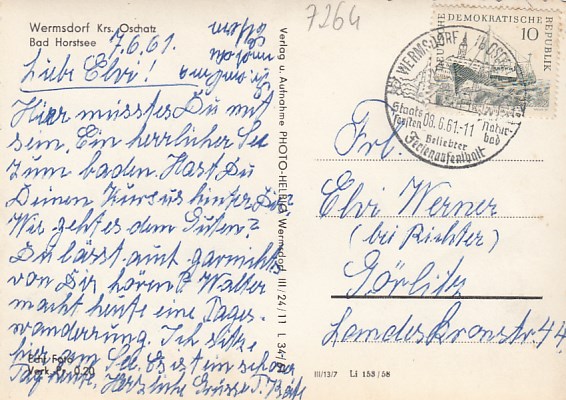 Wermsdorf Krs. Oschatz
Bad Horstsee
7.6.61.
Liebe Elvi!
Hier müsstest Du mit
sein. Ein herrlicher See
zum baden. Hast Du
Deinen Kursus hinter Dir?
Wie geht es dem Guten?
Du lässt aunt garnichts
von Dir hören? Walter
macht heute eine Tages-
wanderung. Ich sitze
hier am See. Es ist ein schöner
Tag heute. Herzliche Grüsse
Echt Foto
Verk. Pr. 0,20
Verlag u. Aufnahme PHOTO-HELBIG Wermsdorf III/24/11 L
7264
DEUTSCHE DEMOKRATISCHE REPUBLIK
10
WERMSDORF
Staats-
forsten
08.6.61.-11
Natur-
bad
Beliebter
Ferienaufenthalt
Frl.
Elvi Werner
(bei Richter)
Görlitz
Landeskronstr. 44
III/13/7 Li 153/58